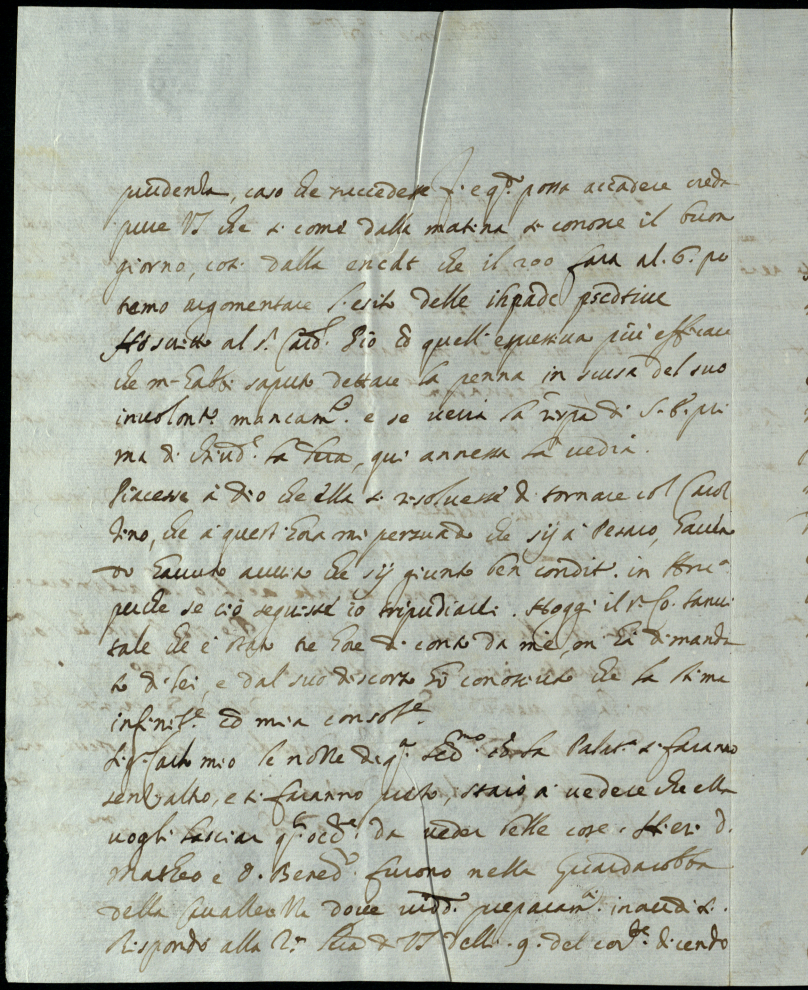 prudenza, caso che succedesse f. e q.to possa accadere creda
pure VS che si come dalla matina si conosce il buon
giorno, così dalla che il 200 sarà al. 6. po
temo argomentare l'esito delle
Hò scritto al S.r Card. Gio cō quell'espressiva più efficace
che m'habbi saputo dettare la penna in scusa del suo
involont.o mancam.to e se verrà la risp.a di S. E. pri
ma di chiud.e la l'ra, qui annessa la vedrà.
Piacesse à Dio che ella si risolvesse di tornare col Carol
lino, che à quest'hora mi persuado che sij à Pesaro, havẽn
do havuto aviso che sij giunto ben condit.o in
perche se ciò seguisse io tripudiarei. Hoggi il
che è stato tre hore di conto da me, m'hà dimanda
to di lei, e dal suo discorso hò conosciuto che la stima
infinit.e cō mia consol.e
S.r Carlo mio le nozze di q.o la Palat.a si faranno
senz'altro, e si faranno presto, starò à vedere che ella
vogli lasciar q.ta occ.ne da veder belle cose. Hieri D.
Matteo e D. Bened.o furono nella Guardarobba
della Cavallerizza dove vidd.o preparam.ti inauditi.
Rispondo alla 2.a l'ra di VS delli. 9. del cor.te dicendo